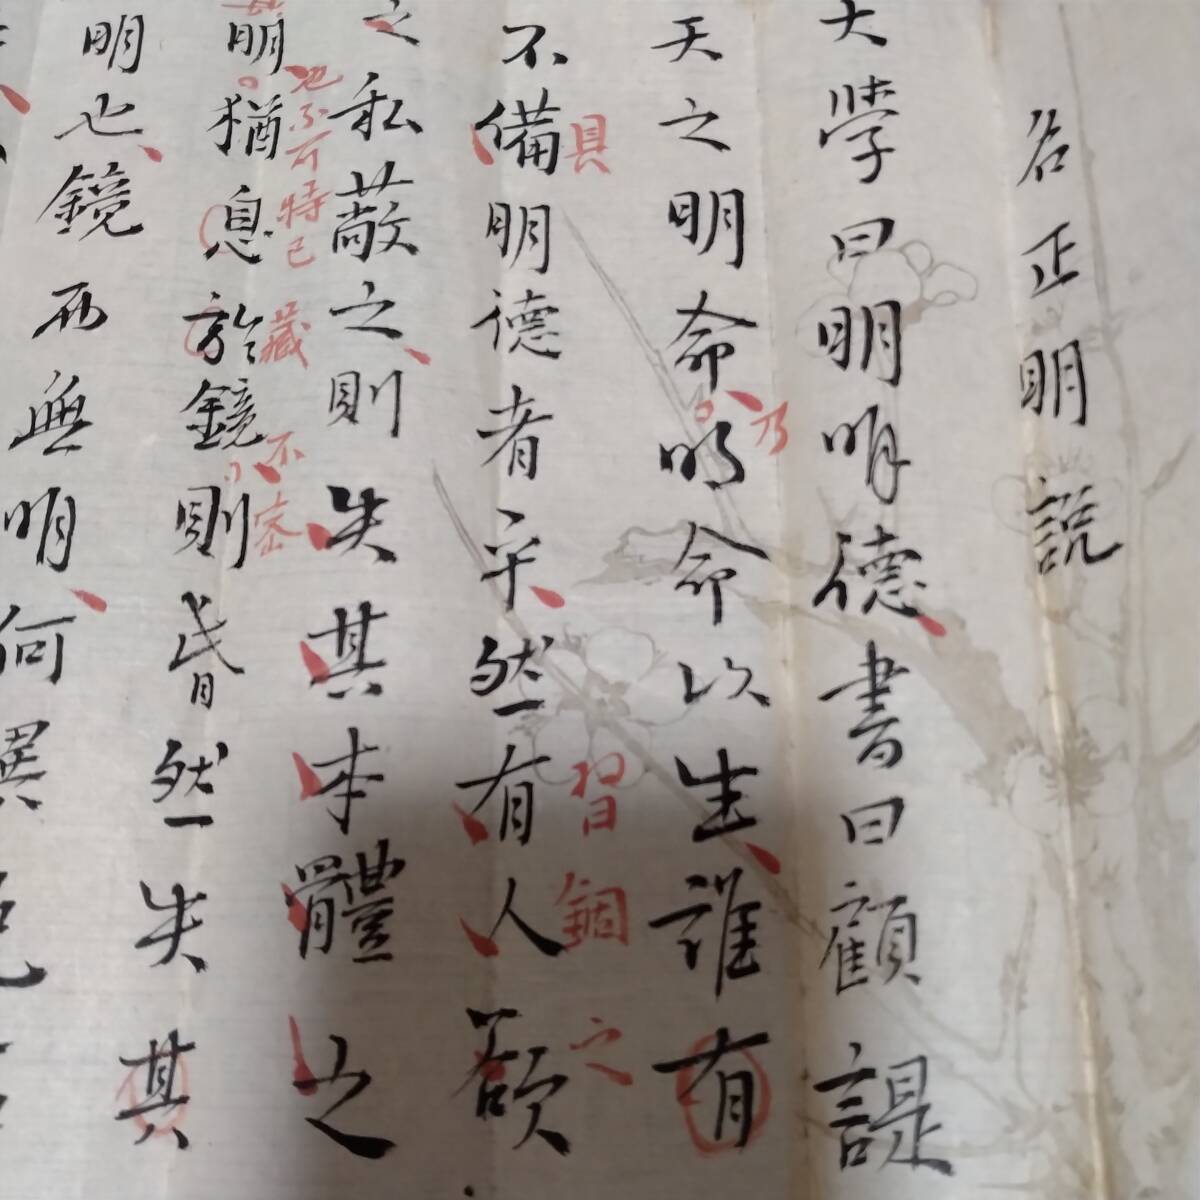 名正明說
大學曰明明德書曰顧諟
天之明命明命以生誰有
乃
不備明德者乎然有人欲
具
習錮之
之私蔽之則失其本體之
明猶息於鏡則昏然失其
也不可特已
藏
不密
明也鏡而無明何異